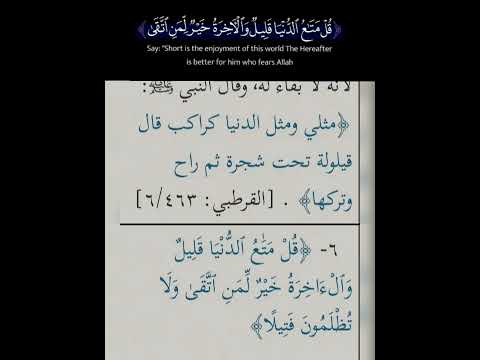 ﴿قُلْ مَتَـٰعُ ٱلدُّنْيَا قَلِيلٌ وَٱلْـَٔاخِرَةُ خَيْرٌ لِّمَنِ ٱتَّقَىٰ﴾
Say: "Short is the enjoyment of this world The Hereafter
is better for him who fears Allah
لأنه لا بقاء له، وقال النبي ﷺ:
﴿مثلي ومثل الدنيا كراكب قال
قيلولة تحت شجرة ثم راح
وتركها﴾ . [القرطبي: ٦/٤٦٣]
٦- ﴿قُلْ مَتَـٰعُ ٱلدُّنْيَا قَلِيلٌ
وَٱلْـَٔاخِرَةُ خَيْرٌ لِّمَنِ ٱتَّقَىٰ وَلَا
تُظْلَمُونَ فَتِيلًا﴾